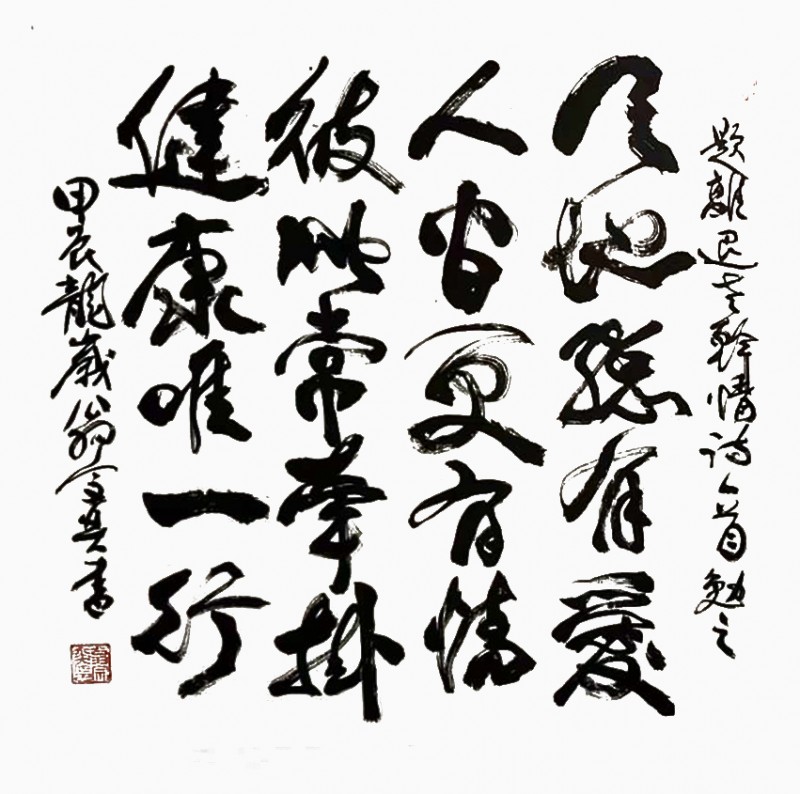 題離退老幹情诗一首勉之
天地總有愛
人皆更有情
彼此常牽掛
健康唯一行
甲辰龍歲翁書